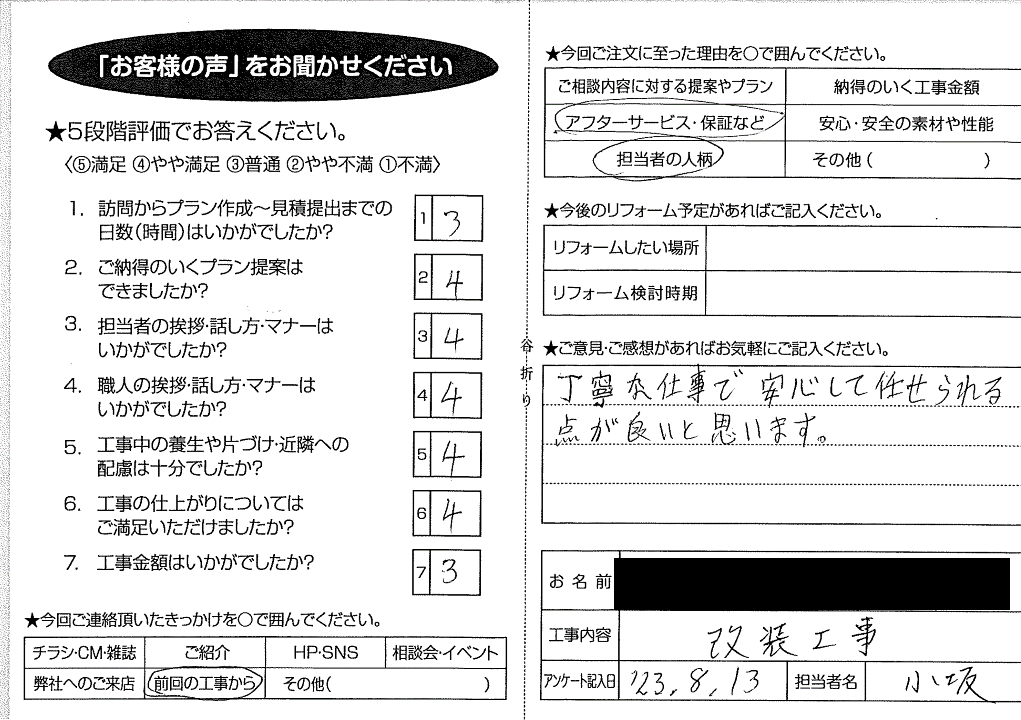 「お客様の声」をお聞かせください
★5段階評価でお答えください。
〈⑤満足 ④やや満足 ③普通 ②やや不満 ①不満〉
1. 訪問からプラン作成～見積提出までの
日数(時間)はいかがでしたか?
1 3
2. ご納得のいくプラン提案は
できましたか?
2 4
3. 担当者の挨拶・話し方・マナーは
いかがでしたか?
3 4
4. 職人の挨拶・話し方・マナーは
いかがでしたか?
4 4
5. 工事中の養生や片づけ・近隣への
配慮は十分でしたか?
5 4
6. 工事の仕上がりについては
ご満足いただけましたか?
6 4
7. 工事金額はいかがでしたか?
7 3
★今回ご連絡頂いたきっかけを○で囲んでください。
チラシ・CM・雑誌 ご紹介 HP・SNS 相談会・イベント
弊社へのご来店 前回の工事から その他( )
谷折り
★今回ご注文に至った理由を○で囲んでください。
ご相談内容に対する提案やプラン 納得のいく工事金額
アフターサービス・保証など 安心・安全の素材や性能
担当者の人柄 その他( )
★今後のリフォーム予定があればご記入ください。
リフォームしたい場所
リフォーム検討時期
★ご意見・ご感想があればお気軽にご記入ください。
丁寧な仕事で安心して任せられる
点が良いと思います。
お名前
工事内容 改装工事
アンケート記入日 '23.8.13 担当者名 小坂